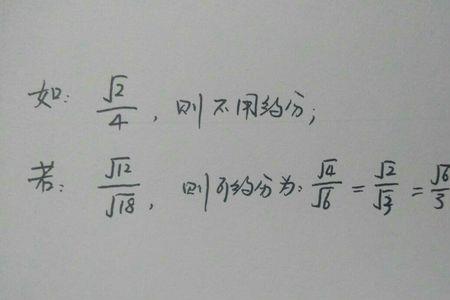 如：√2/4，则不用约分；
若：√12/√18，则可约分为：√4/√6 = √2/√3 = √6/3